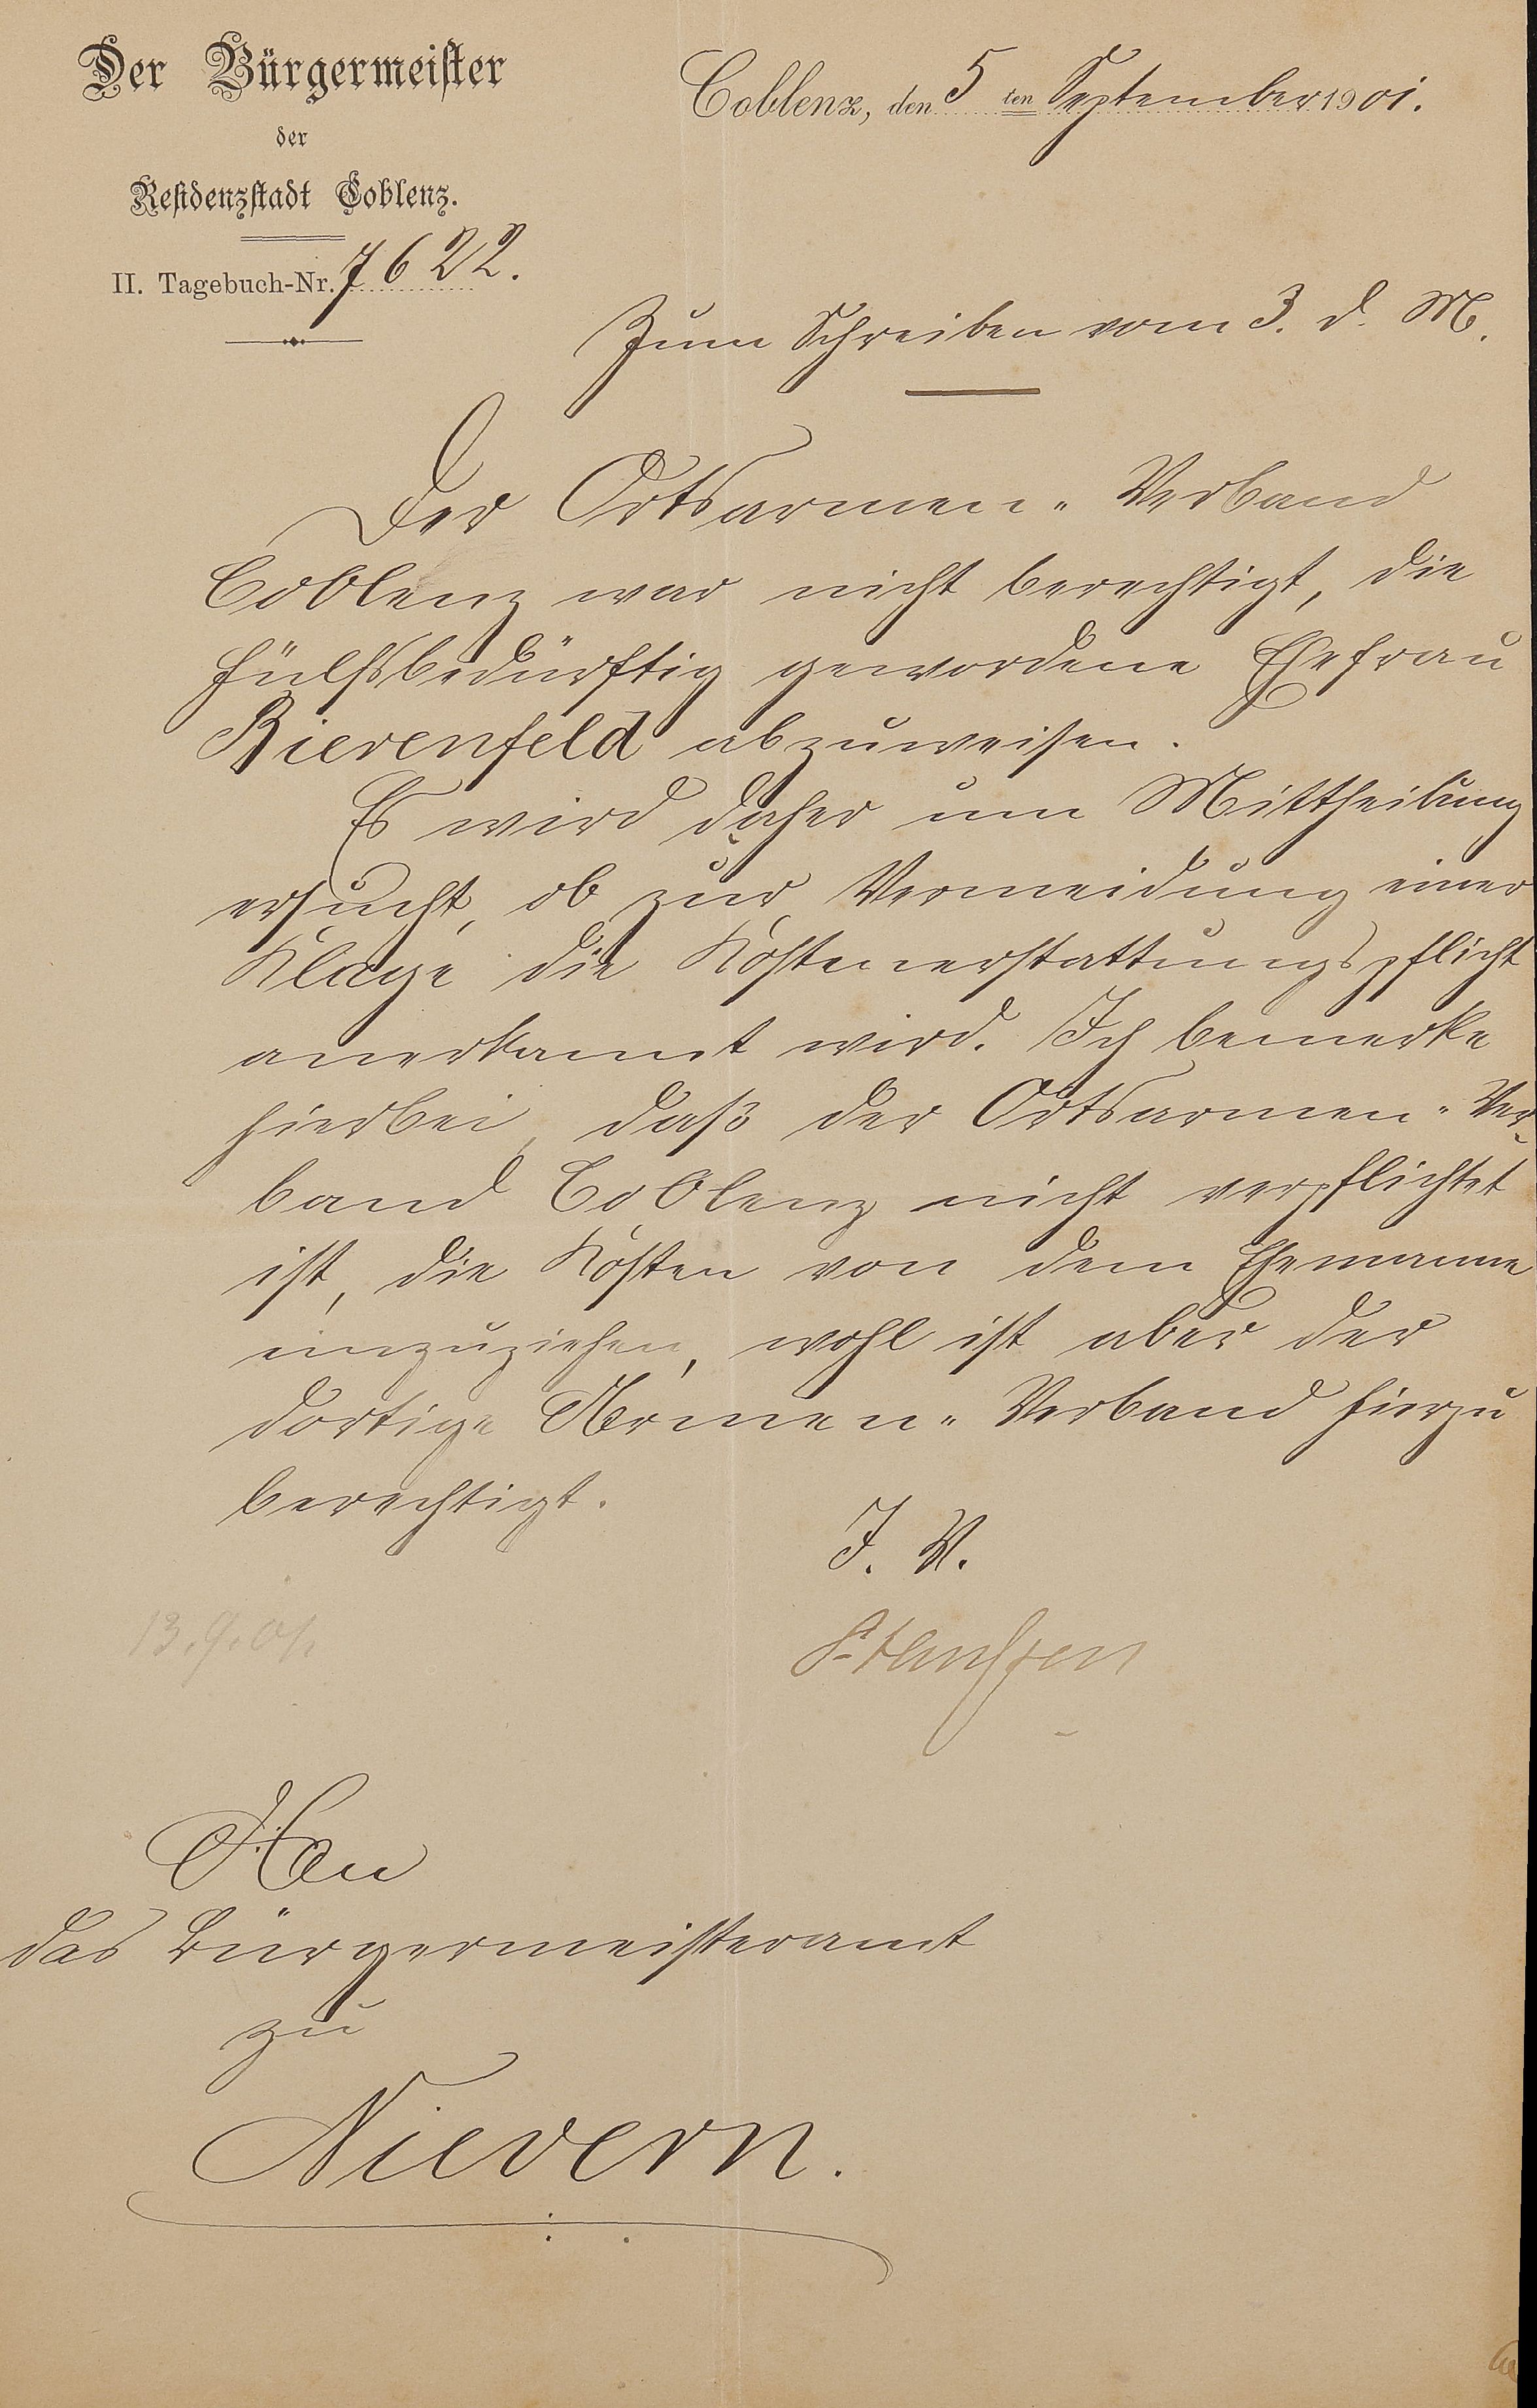 Der Bürgermeister
der
Residenzstadt Coblenz.
II. Tagebuch-Nr. 7622.
Coblenz, den 5ten September 1901.
Zum Schreiben vom 3. d. M.
Der Ortsarmen-Verband
Coblenz war nicht berechtigt, die
hülfsbedürftig gewordene Ehefrau
Bierenfeld abzuweisen.
Es wird daher um Mittheilung
ersucht, ob zur Vermeidung einer
Klage die Kostenerstattungspflicht
anerkannt wird. Ich bemerke
hierbei, daß der Ortsarmen-Ver-
band Coblenz nicht verpflichtet
ist, die Kosten von dem Ehemanne
einzuziehen, wohl ist aber der
dortige Armen-Verband hierzu
berechtigt.
J. V.
13.9.01.
An
das Bürgermeisteramt
zu
Nievern.